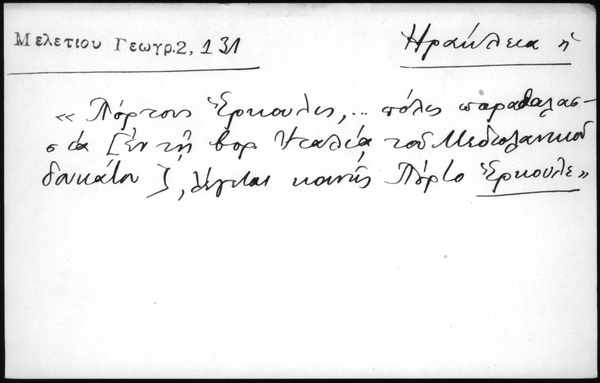 Μελετίου Γεωγρ. 2, 131
Ἡράκλεια ἡ
« Πόρτους Ἑρκουλις, ... πόλις παραθαλασ-
σία [ἐν τῇ βορ Ἰταλίᾳ τοῦ Μεδιολανικοῦ
δουκάτου], λέγεται κοινῶς Πόρτο Ἑρκουλε»